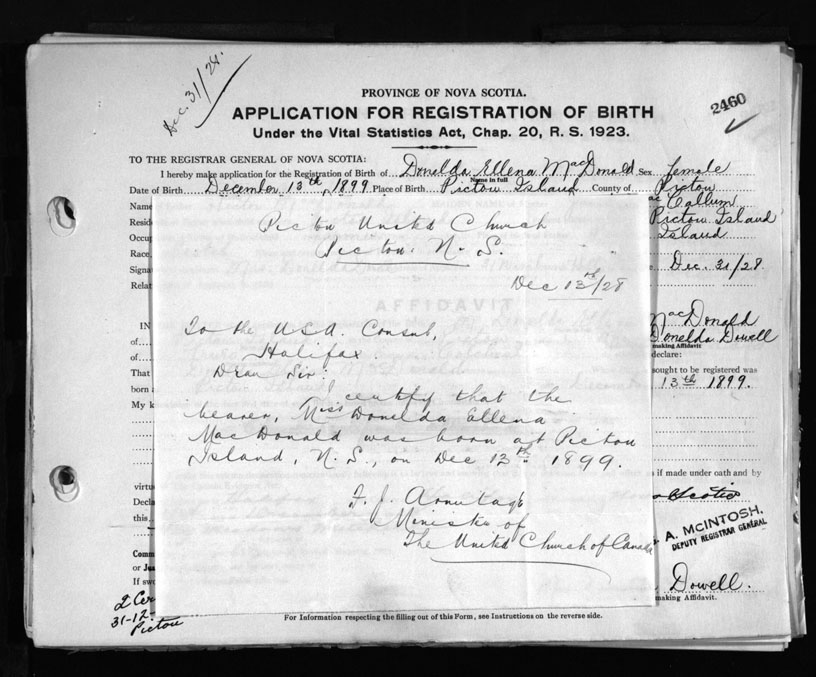 Dec. 31/28.
2460
PROVINCE OF NOVA SCOTIA.
APPLICATION FOR REGISTRATION OF BIRTH
Under the Vital Statistics Act, Chap. 20, R. S. 1923.
TO THE REGISTRAR GENERAL OF NOVA SCOTIA:
I hereby make application for the Registration of Birth of Donelda Ellena MacDonald Sex female
Name in full
Date of Birth December 13th, 1899 Place of Birth Pictou Island County of Pictou
Name
Callum
Resid
Pictou Island
Occup
Island
Race
Signa
Dec. 31/28
Relat
Pictou United Church
Pictou, N. S.
Dec 13th/28
AFFIDAVIT
To the U.S.A. Consul,
Halifax.
Dear Sir:
I certify that the
bearer, Miss Donelda Ellena
MacDonald was born at Pictou
Island, N. S., on Dec 13th 1899.
F. J. Armitage
Minister of
The United Church of Canada
IN
MacDonald
of
Donelda Dowell
making Affidavit
of
declare:
That
sought to be registered was
born a
13th 1899.
My k
if made under oath and by
virtu
Decla
Scotia
this
A. McINTOSH,
DEPUTY REGISTRAR GENERAL
Comm
or Jus
Dowell.
making Affidavit.
If swo
2 Cer
31-12
Pictou
For Information respecting the filling out of this Form, see Instructions on the reverse side.